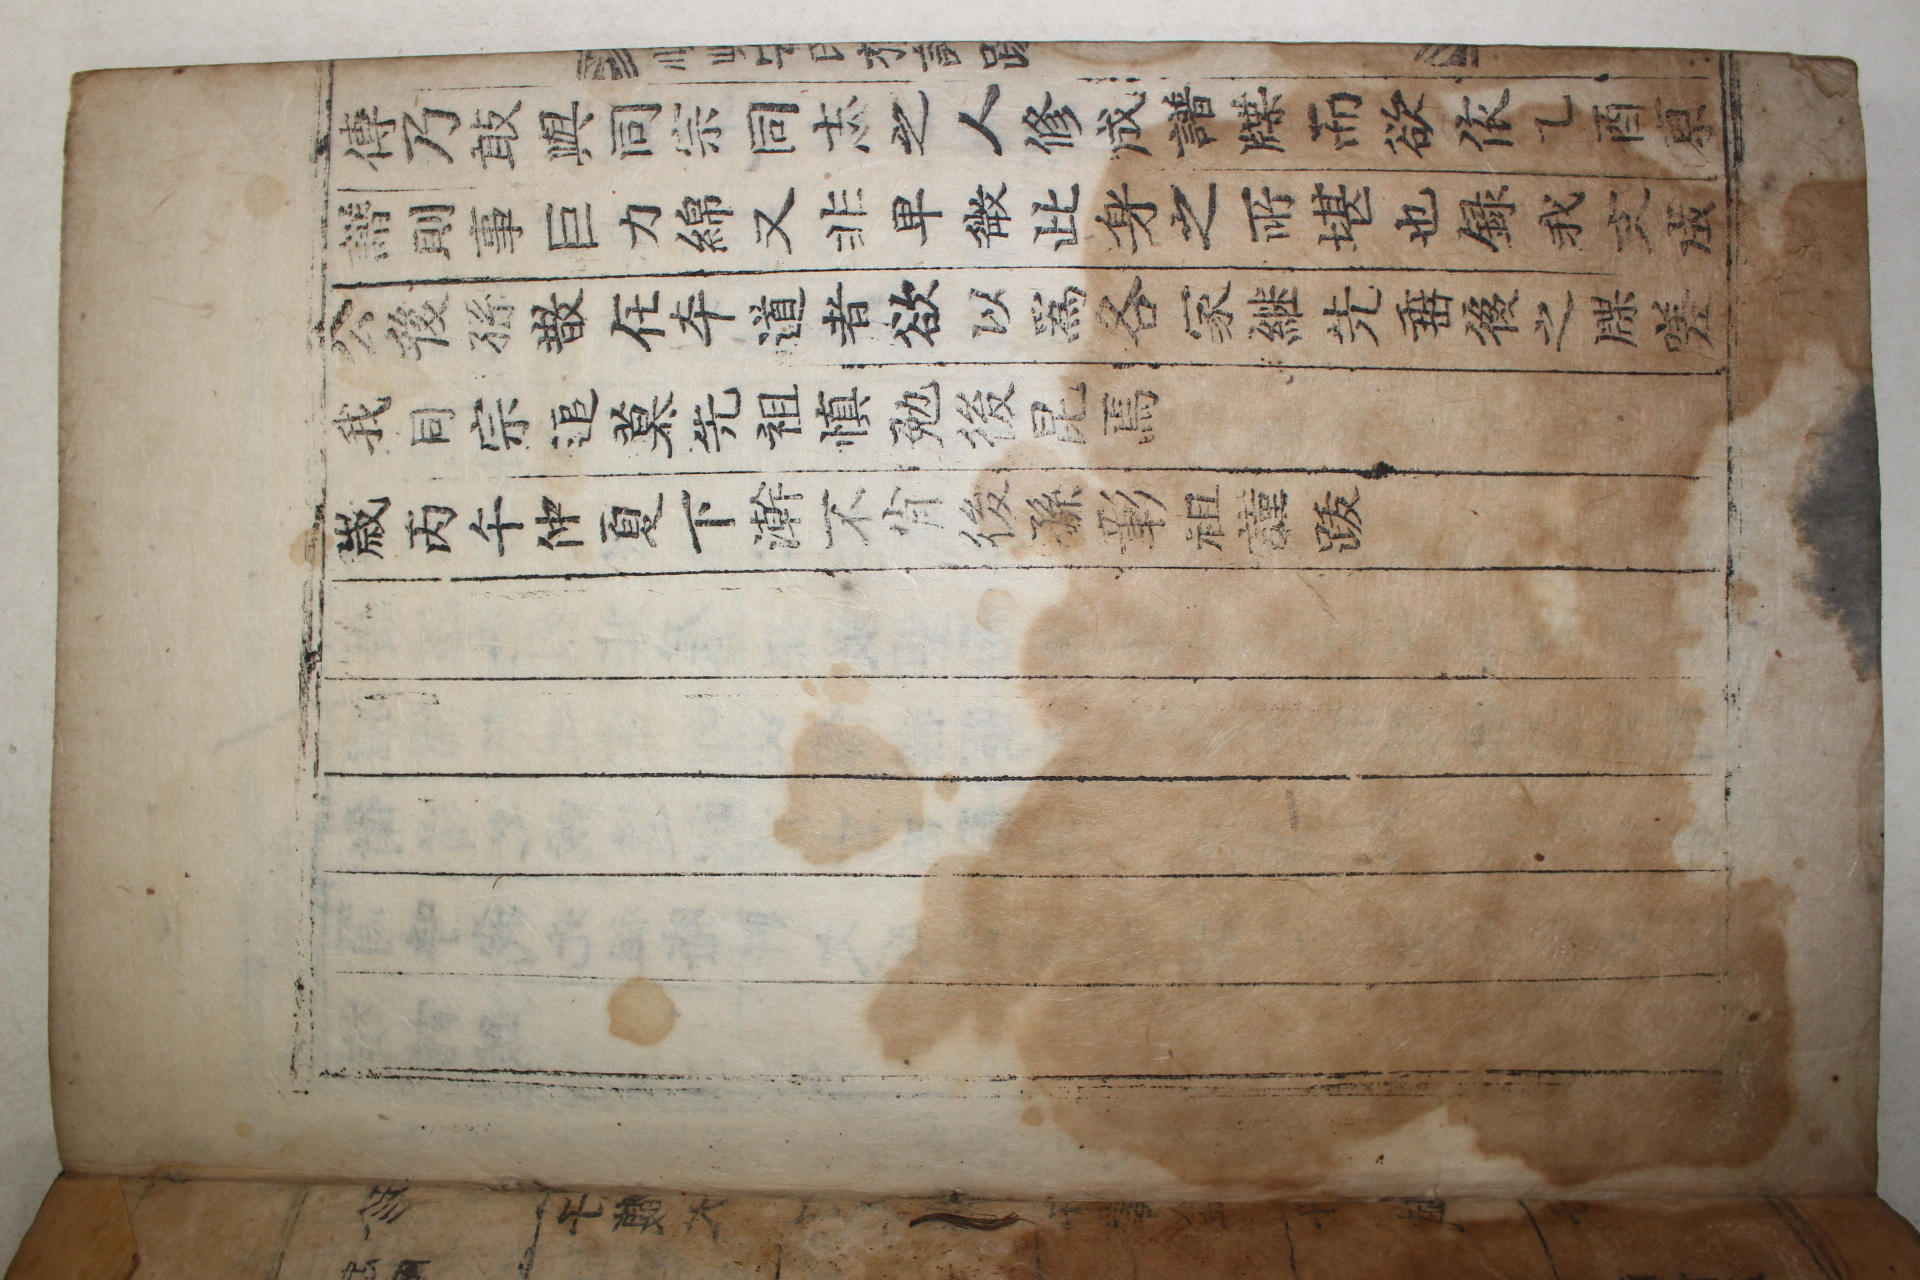 傳乃敢與同宗同志之人修成譜牒而欲依乙酉原
譜則事巨力綿又非卑微此身之所堪也錄我文
公後孫散在夲道者欲以爲各家継先垂後之牒嗟
我同宗追慕先祖慎勉後昆焉
歲丙午仲夏下澣不肖後孫彰祖謹跋